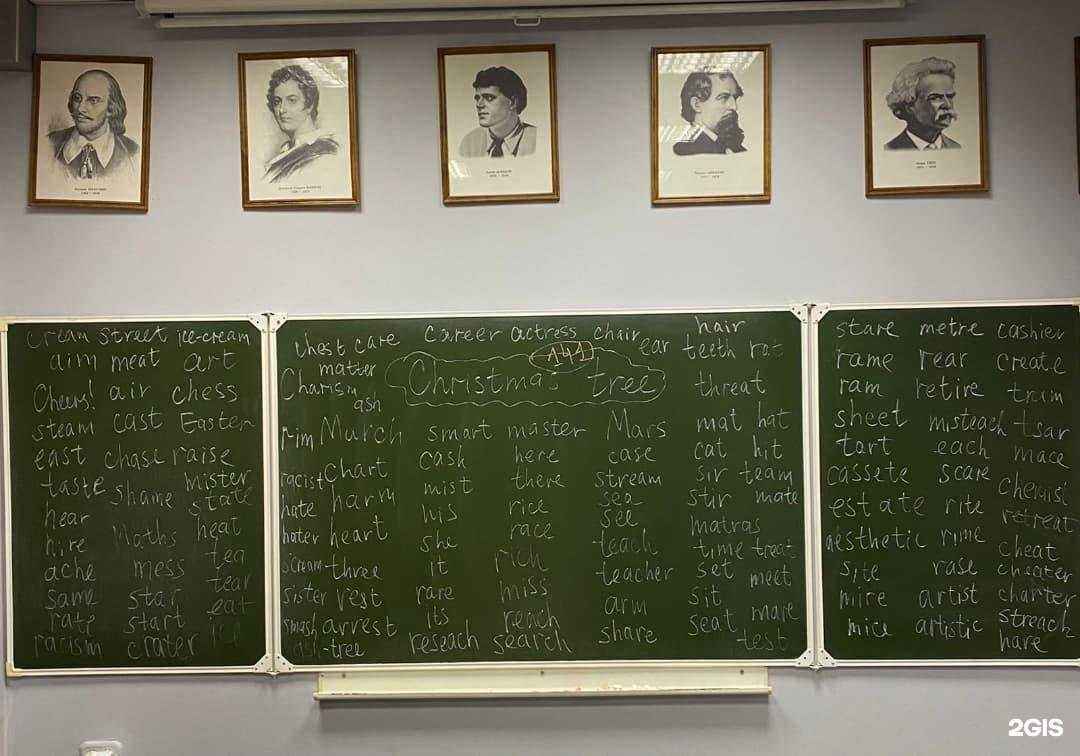 cream street ice-cream
aim meat art
Cheers! air chess
steam cast Easter
east chase raise
taste shame mister
state
hear Maths heat
hire tea
ache mess tear
same star eat
rate start
racism crater
chest care career actress chair ear hair
matter teeth rat
Charism Christmas tree 141 threat
ash
rim March smart master Mars mat hat
cash here case cat hit
racist chart mist there stream sir team
hate harm his rice sea stir mate
see
hater heart she race teach matras
scream three it rich teacher time treat
sister vest rare miss arm set meet
its reach sit
smash arrest reseach search share seat mare
ash-tree test
stare metre cashier
rame rear create
ram retire trim
sheet misteach tsar
tart each mace
cassete scare chemist
estate rite retreat
aesthetic rime cheat
site rase cheater
mire artist charter
mice artistic streach
hare
2GIS